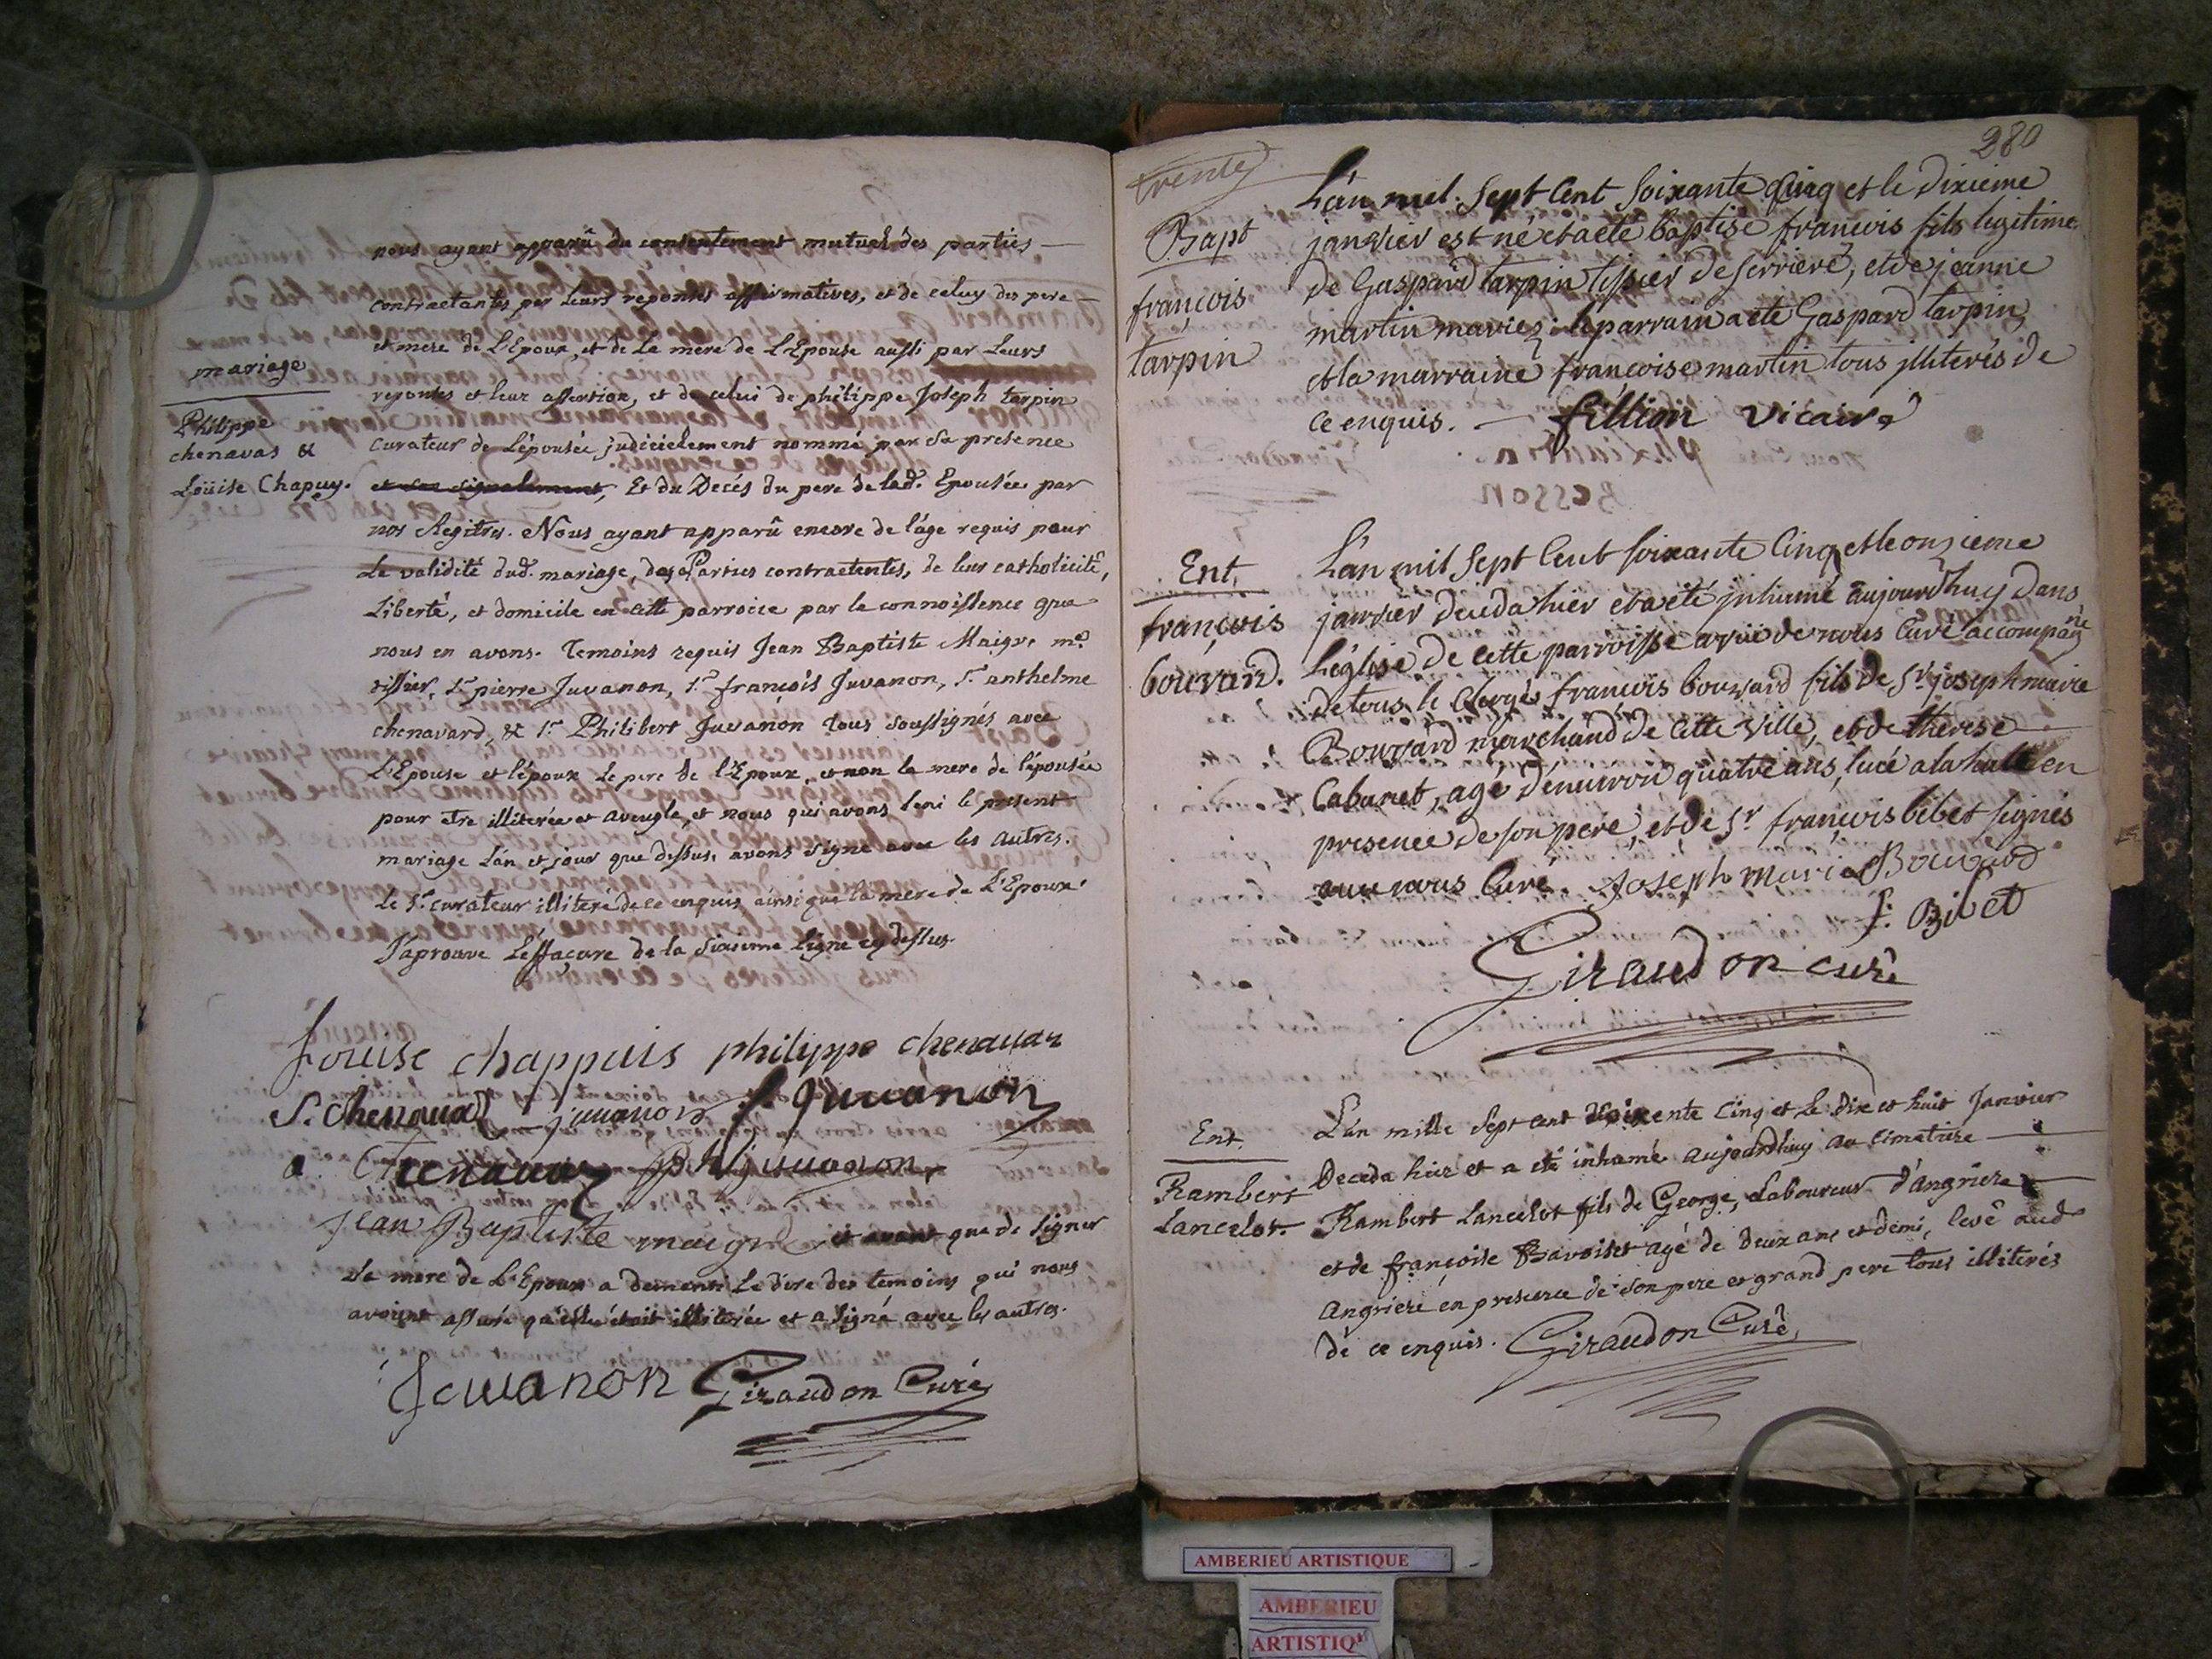 nous ayant apparû du consentement mutuel des parties
contractantes par leurs reponses affirmatives, et de celuy des pere
et mere de L'Epoux, et de la mere de L'Epouse aussi par Leurs
reponses et leur assertion, et de celui de philippe Joseph tarpin
curateur de L'épousée judicielement nommé par sa presence
et son signalement, Et du Decés du pere de lad. Epousée par
nos Regitres. Nous ayant apparû encore de l'áge requis pour
La validité dud. mariage, des Parties contractentes, de leur catholicité,
Liberté, et domicile en cette parroice par la connoissence que
nous en avons. Temoins requis Jean Baptiste Maigre md
tissier, Sr pierre Juvanon, Sr françois Juvanon, Sr anthelme
chenavard, & Sr Philibert Juvanon tous soussignés avec
L'Epouse et l'époux le pere de l'Epoux, et non la mere de l'épousée
pour etre illiterée et aveugle, et nous qui avons beni le present
mariage L'an et jour que dessus, avons signé avec les autres.
Le Sr curateur illiteré de ce enquis, ainsi que la mere de L'Epoux.
J'aprouve L'effaçure de la sixieme ligne cy dessus
mariage
Philippe
chenavas &
Loüise Chapuy.
Louise chappuis philippe chenavar
S. chenavar juvanon f. Juvanon
a. Chenavar ph. juvanon
jean Baptiste maigre et avant que de signer
La mere de L'Epoux a dementi le dire des temoins qui nous
avoient assuré qu'elle étoit illiterée et a signé avec les autres.
Juvanon Giraudon Curé
280
trente
Bapt
françois
tarpin
L'an mil Sept Cent Soixante Cinq et le Dixieme
janvier est né et a eté baptisé françois fils legitime
de Gaspard tarpin tissier de serriere, et de jeanne
martin mariez: le parrain a eté Gaspard tarpin
et la marraine françoise martin tous jlliterés de
ce enquis. fillion vicaire
Ent.
françois
bouvard.
L'an mil Sept Cent soixante Cinq et le onzieme
janvier deceda hier et a eté jnhumé aujourdhuy dans
L'église de cette parroisse par nous Curé accompagné
de tous le Clergé françois bouvard fils de Sr joseph marie
Bouvard marchand de cette Ville, et de therese
Cabanet, agé d'environ quatre ans, levé a la halle en
presence de son pere, et de Sr françois bibet signés
avec nous Curé. Joseph Marie Bouvard
f. Bibet
Giraudon curé
Ent.
Rambert
Lancelot.
L'an mille Sept cent soixente Cinq et Le dix et huit Janvier
Deceda hier et a eté inhumé aujourdhuy au Cimetiere
Rambert Lancelot fils de George, Laboureur d'angriere
et de françoise Bavoiset agé de deux ans et demi, levé aud
angriere en presence de son pere et grand pere tous illiterés
de ce enquis. Giraudon Curé
AMBERIEU ARTISTIQUE
AMBERIEU
ARTISTIQ